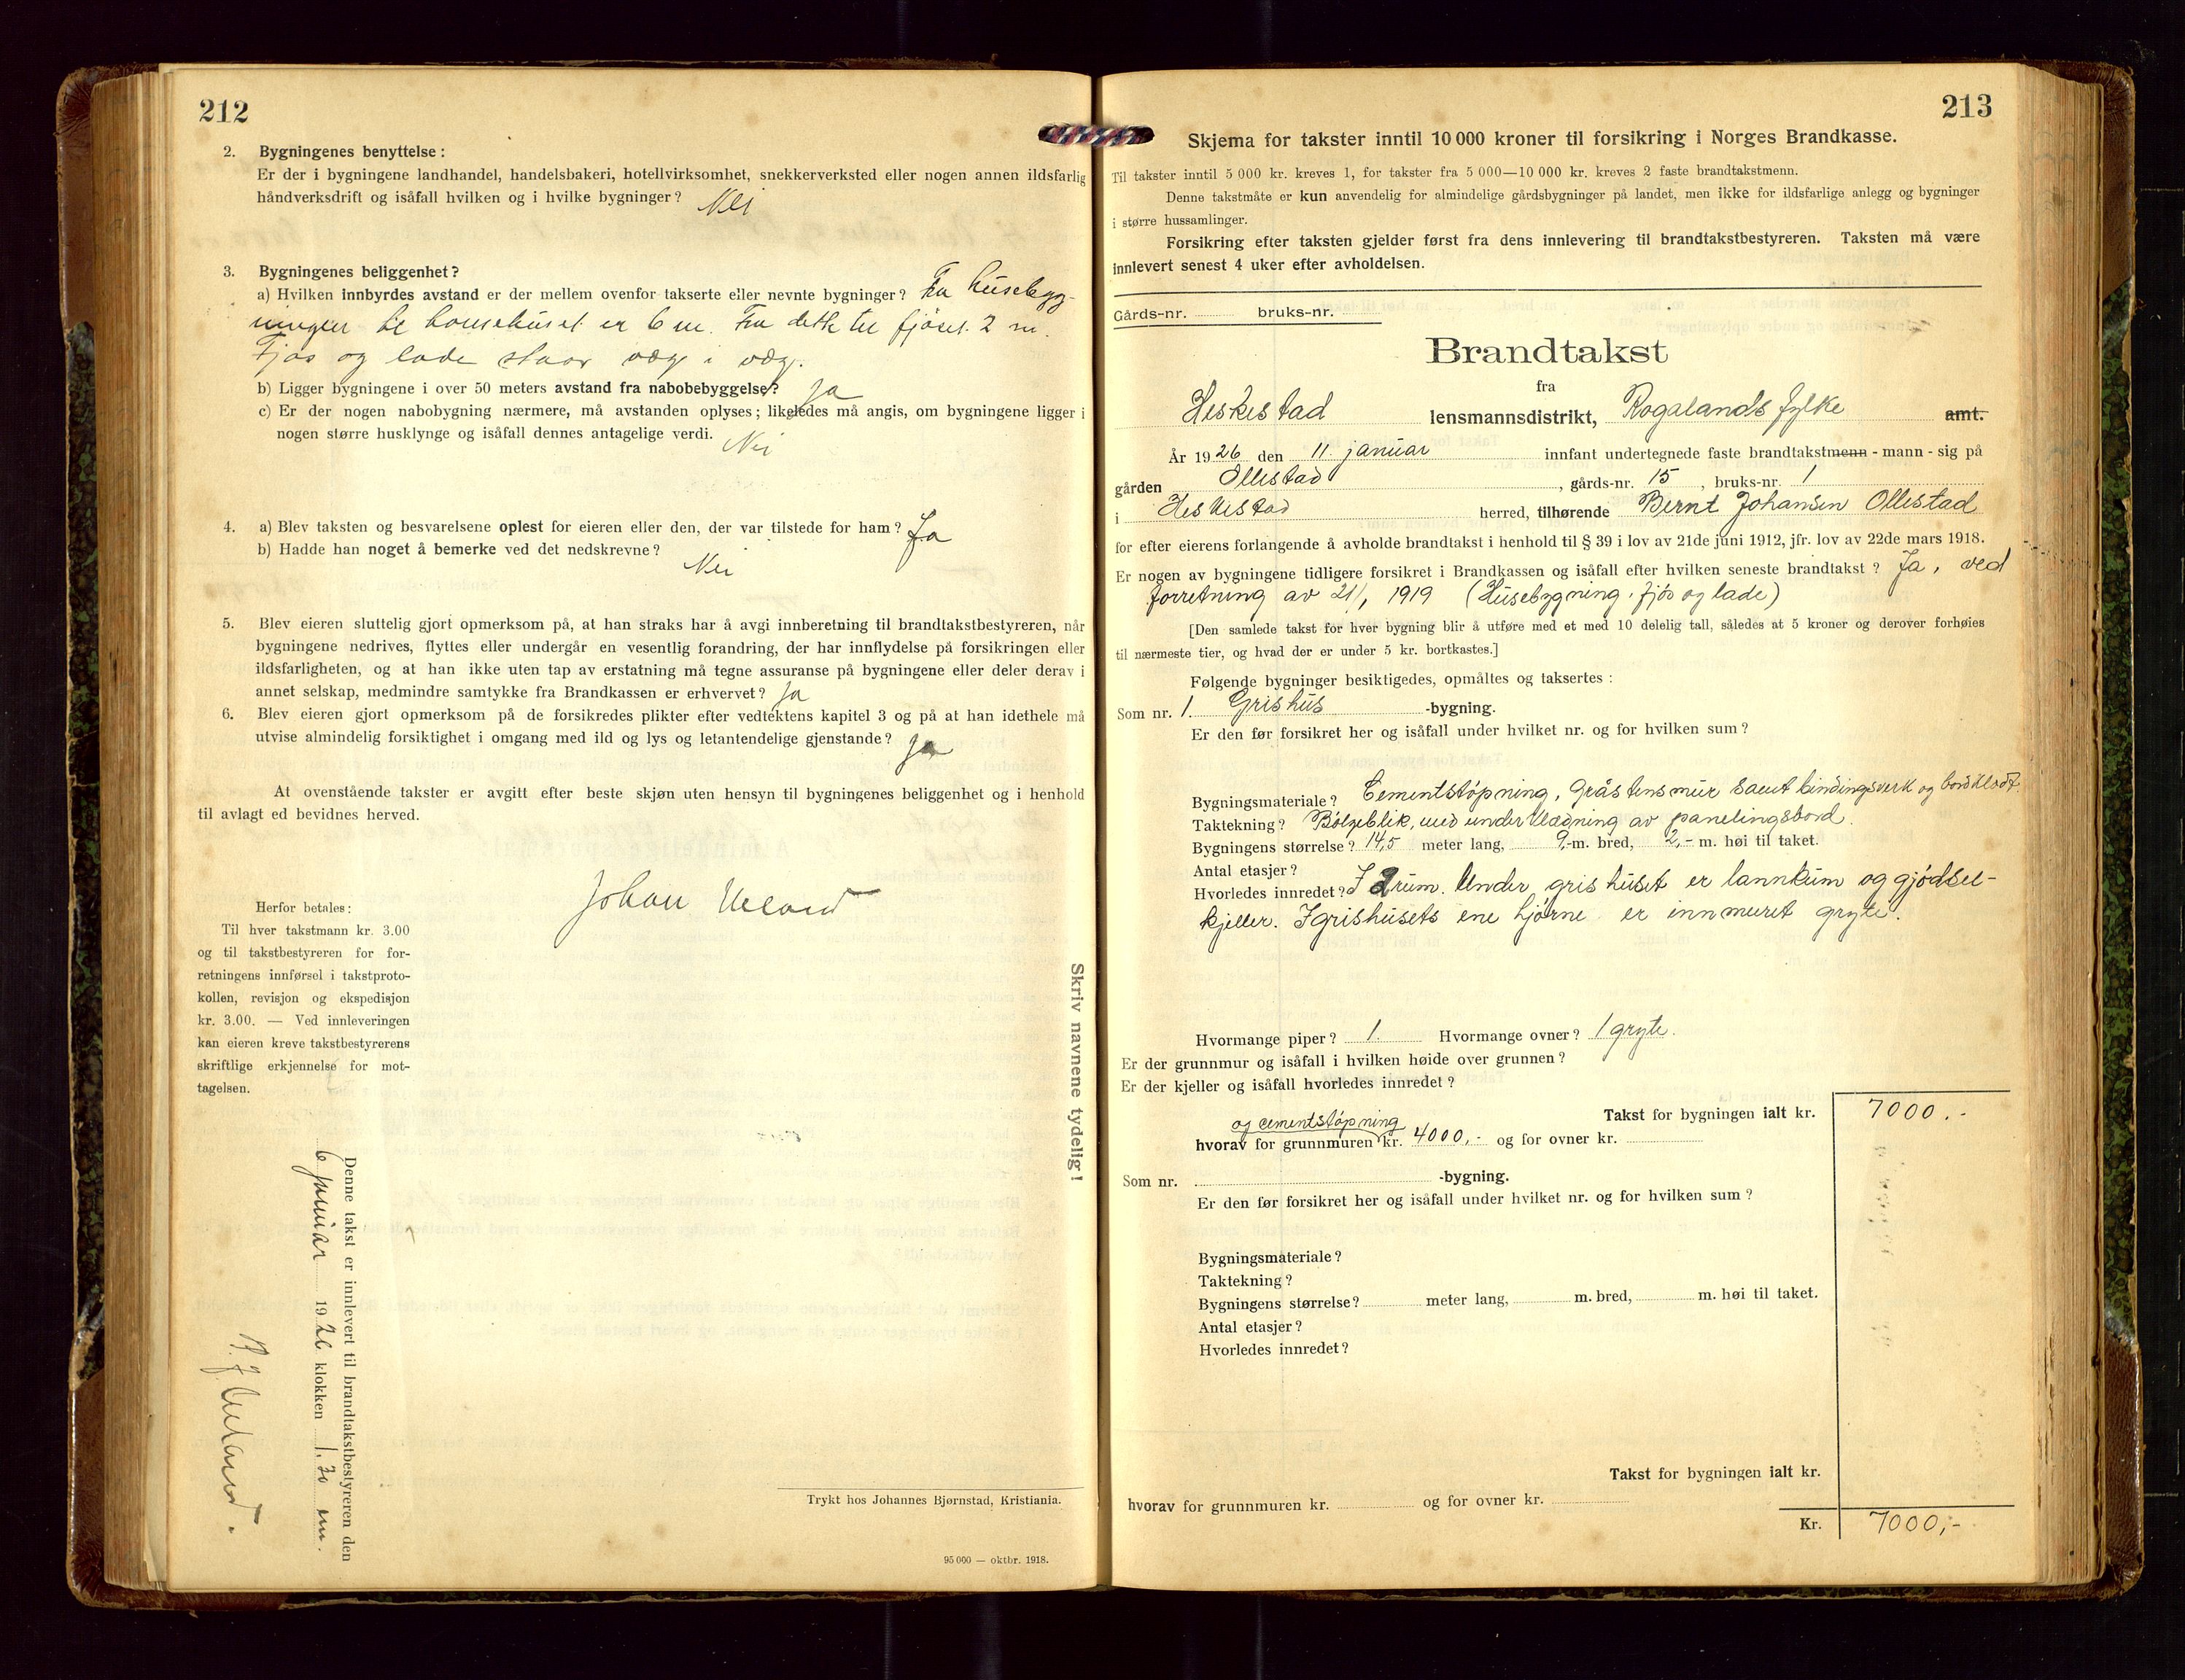 212
2. Bygningenes benyttelse:
Er der i bygningene landhandel, handelsbakeri, hotellvirksomhet, snekkerverksted eller nogen annen ildsfarlig
håndverksdrift og isåfall hvilken og i hvilke bygninger? Nei
3. Bygningenes beliggenhet?
a) Hvilken innbyrdes avstand er der mellem ovenfor takserte eller nevnte bygninger? Fra husebyg-
ningen til hønsehuset er 6 m. Fra dette til fjøset 2 m.
Fjøs og lade staar væg i væg.
b) Ligger bygningene i over 50 meters avstand fra nabobebyggelse? Ja
c) Er der nogen nabobygning nærmere, må avstanden oplyses; likeledes må angis, om bygningene ligger i
nogen større husklynge og isåfall dennes antagelige verdi. Nei
4. a) Blev taksten og besvarelsene oplest for eieren eller den, der var tilstede for ham? Ja
b) Hadde han noget å bemerke ved det nedskrevne? Nei
5. Blev eieren sluttelig gjort opmerksom på, at han straks har å avgi innberetning til brandtakstbestyreren, når
bygningene nedrives, flyttes eller undergår en vesentlig forandring, der har innflydelse på forsikringen eller
ildsfarligheten, og at han ikke uten tap av erstatning må tegne assuranse på bygningene eller deler derav i
annet selskap, medmindre samtykke fra Brandkassen er erhvervet? Ja
6. Blev eieren gjort opmerksom på de forsikredes plikter efter vedtektens kapitel 3 og på at han idethele må
utvise almindelig forsiktighet i omgang med ild og lys og letantendelige gjenstande? Ja
At ovenstående takster er avgitt efter beste skjøn uten hensyn til bygningenes beliggenhet og i henhold
til avlagt ed bevidnes herved.
Johan Ueland
Herfor betales:
Til hver takstmann kr. 3.00
og til takstbestyreren for for-
retningens innførsel i takstproto-
kollen, revisjon og ekspedisjon
kr. 3.00. — Ved innleveringen
kan eieren kreve takstbestyrerens
skriftlige erkjennelse for mot-
tagelsen.
Skriv navnene tydelig!
Denne takst er innlevert til brandtakstbestyreren den
6 januar 1926 klokken 1,30 em.
Ueland.
Trykt hos Johannes Bjørnstad, Kristiania.
95 000 — oktbr. 1918.
213
Skjema for takster inntil 10 000 kroner til forsikring i Norges Brandkasse.
Til takster inntil 5 000 kr. kreves 1, for takster fra 5 000—10 000 kr. kreves 2 faste brandtakstmenn.
Denne takstmåte er kun anvendelig for almindelige gårdsbygninger på landet, men ikke for ildsfarlige anlegg og bygninger
i større hussamlinger.
Forsikring efter taksten gjelder først fra dens innlevering til brandtakstbestyreren. Taksten må være
innlevert senest 4 uker efter avholdelsen.
Gårds-nr. bruks-nr.
Brandtakst
fra
Heskestad lensmannsdistrikt, Rogalands fylke amt.
År 1926 den 11. januar innfant undertegnede faste brandtakstmenn - mann - sig på
gården Ollestad, gårds-nr. 15, bruks-nr. 1
i Heskestad herred, tilhørende Bernt Johansen Ollestad
for efter eierens forlangende å avholde brandtakst i henhold til § 39 i lov av 21de juni 1912, jfr. lov av 22de mars 1918.
Er nogen av bygningene tidligere forsikret i Brandkassen og isåfall efter hvilken seneste brandtakst? Ja, ved
forretning av 21/1 1919 (Husebygning, fjøs og lade)
[Den samlede takst for hver bygning blir å utføre med et med 10 delelig tall, således at 5 kroner og derover forhøies
til nærmeste tier, og hvad der er under 5 kr. bortkastes.]
Følgende bygninger besiktigedes, opmåltes og taksertes:
Som nr. 1. Grishus -bygning.
Er den før forsikret her og isåfall under hvilket nr. og for hvilken sum?
Bygningsmateriale? Cementstøpning, gråstensmur samt bindingsverk og bordklædt.
Taktekning? Bølgeblik, med underklædning av panelingsbord.
Bygningens størrelse? 14,5 meter lang, 9,- m. bred, 2,- m. høi til taket.
Antal etasjer?
Hvorledes innredet? I 2 rum. Under grishuset er lannkum og gjødsel-
kjeller. I grishusets ene hjørne er innmuret gryte.
Hvormange piper? 1. Hvormange ovner? 1 gryte.
Er der grunnmur og isåfall i hvilken høide over grunnen?
Er der kjeller og isåfall hvorledes innredet?
Takst for bygningen ialt kr. 7000.-
og cementstøpning
hvorav for grunnmuren kr. 4000,- og for ovner kr.
Som nr. -bygning.
Er den før forsikret her og isåfall under hvilket nr. og for hvilken sum?
Bygningsmateriale?
Taktekning?
Bygningens størrelse? meter lang, m. bred, m. høi til taket.
Antal etasjer?
Hvorledes innredet?
Takst for bygningen ialt kr.
hvorav for grunnmuren kr. og for ovner kr.
Kr. 7000,-